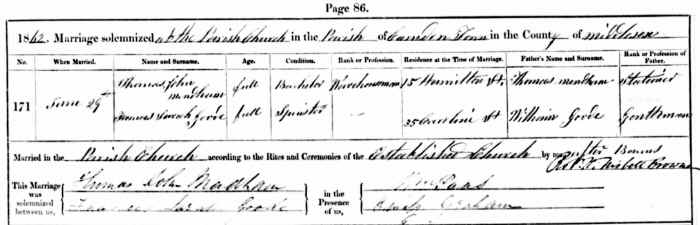 Page 86.
1862. Marriage solemnized at the Parish Church in the Parish of Camden Town in the County of Middlesex
No. When Married. Name and Surname. Age. Condition. Rank or Profession. Residence at the Time of Marriage. Father's Name and Surname. Rank or Profession of Father.
171 June 29th Thomas John full Bachelor Warehouseman 15 Hamilton St. Thomas Stationer
Frances Sarah Goode full Spinster — 25 Caroline St William Goode Gentleman
Married in the Parish Church according to the Rites and Ceremonies of the Established Church by me after Banns
This Marriage was solemnized between us, Thomas John in the Presence of us,
Frances Sarah Goode Graham